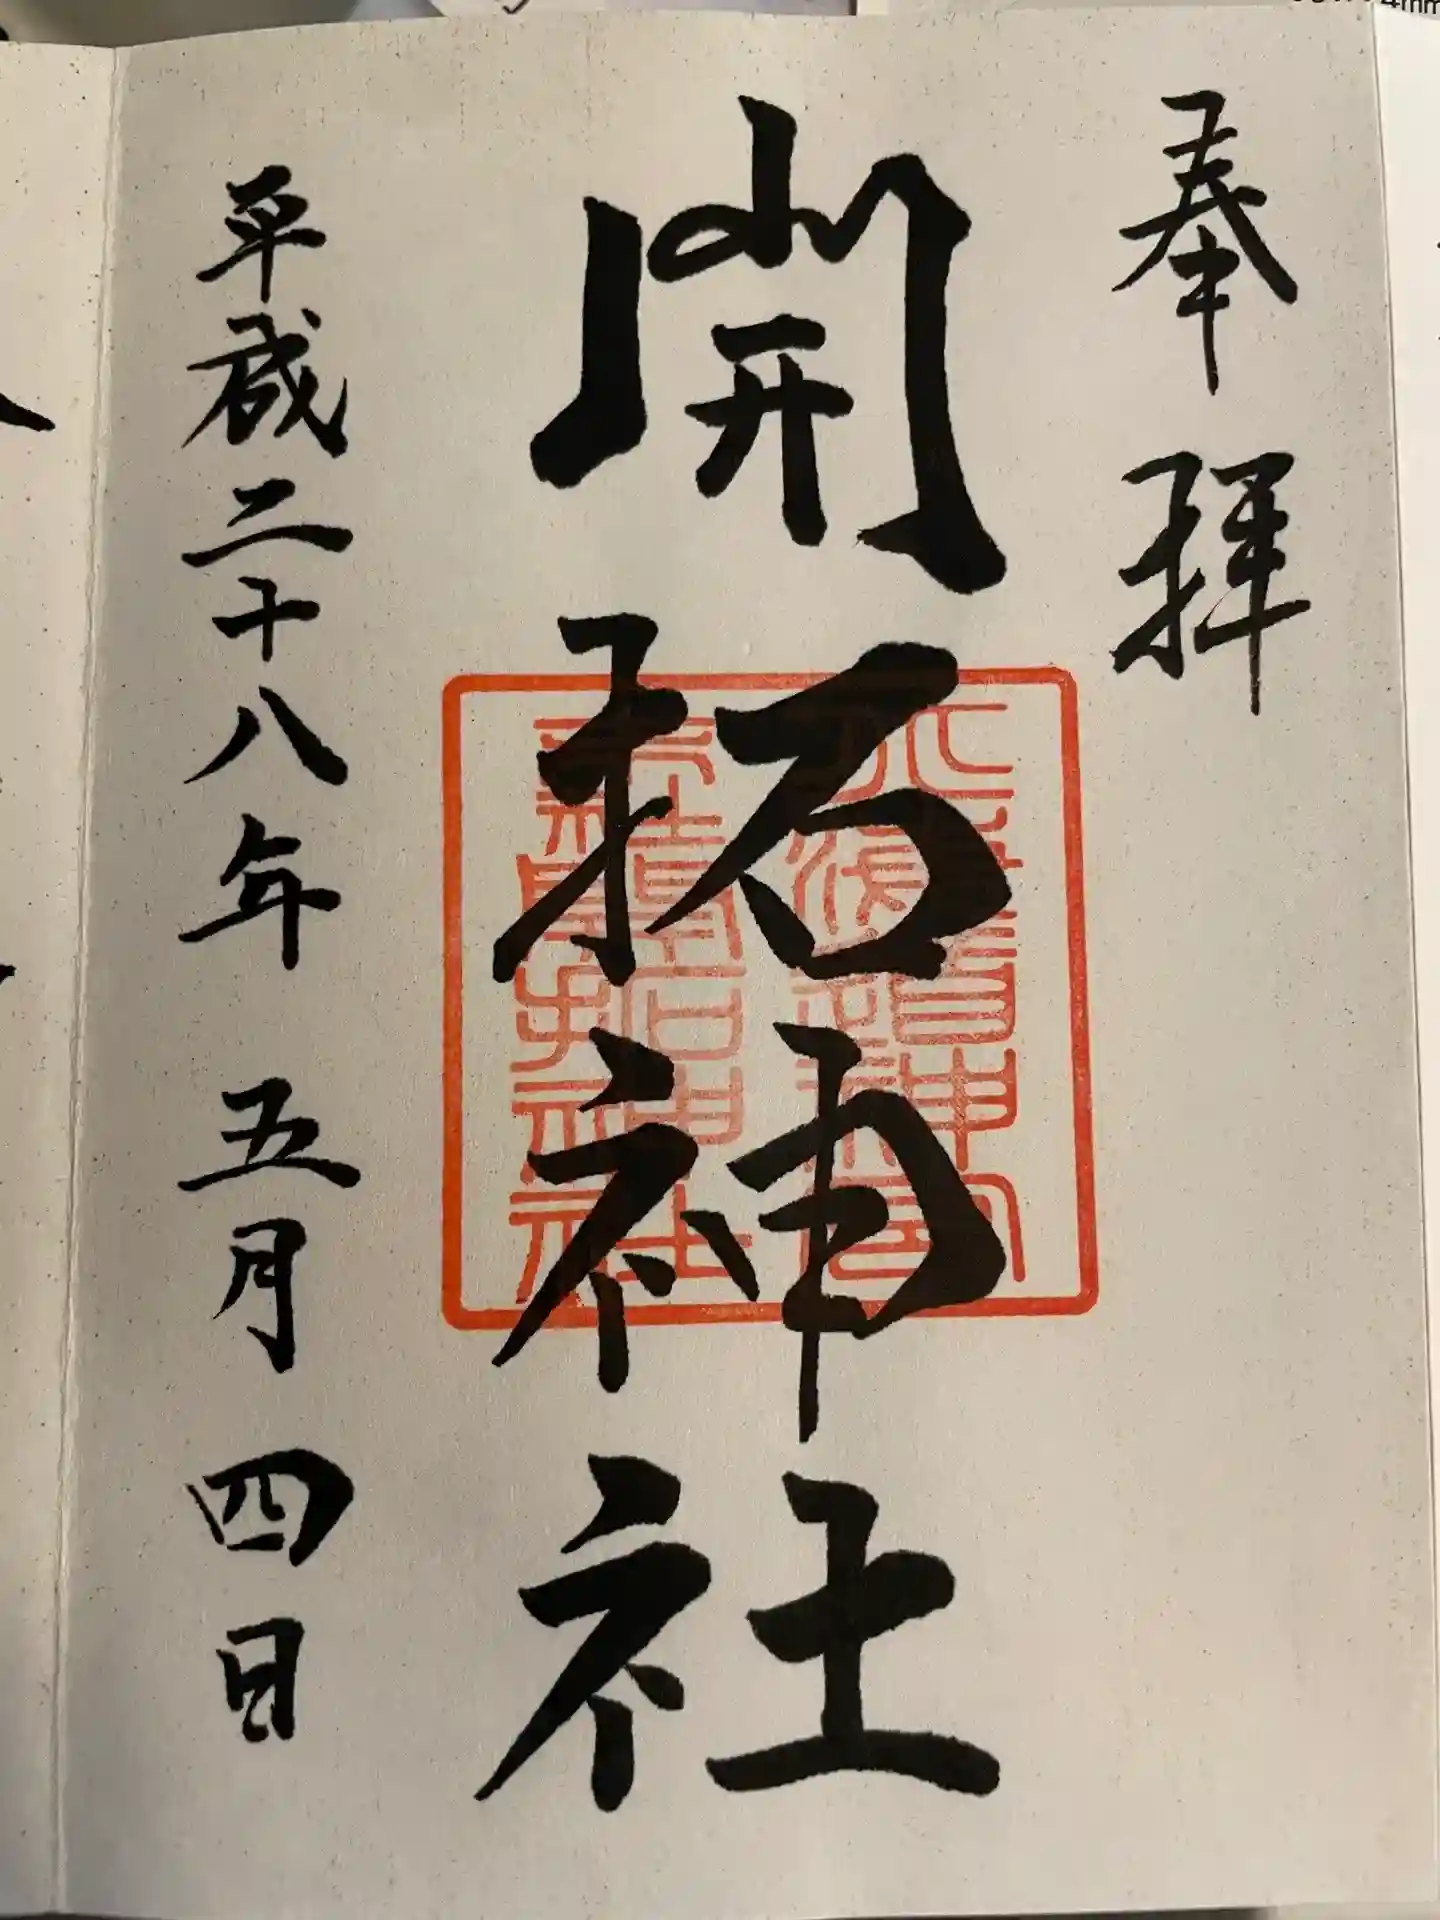 奉拝
開拓神社
平成二十八年 五月 四日